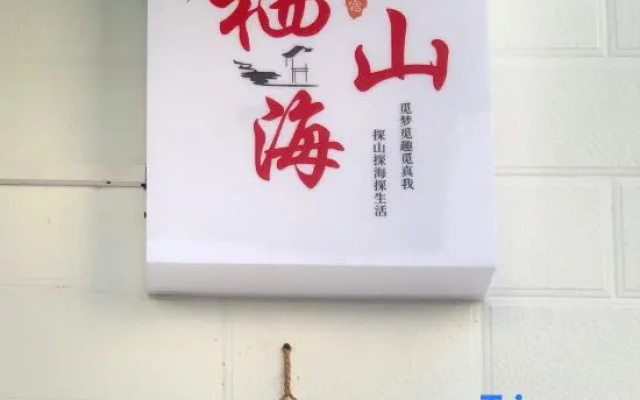 山
栖海
觅梦觅趣觅真我
探山探海探生活